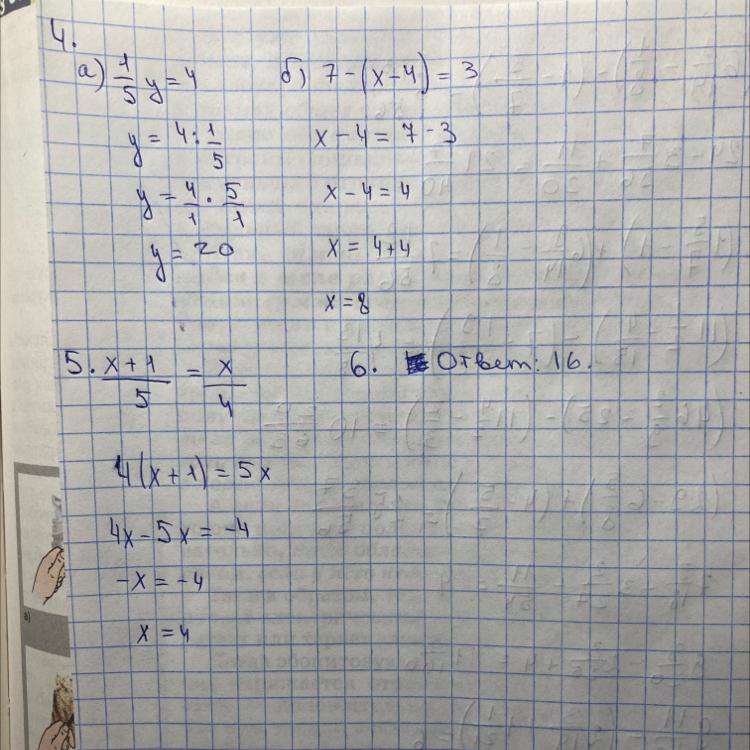 4.
а) 1/5 y = 4
y = 4 : 1/5
y = 4/1 · 5/1
y = 20
б) 7 - (x - 4) = 3
x - 4 = 7 - 3
x - 4 = 4
x = 4 + 4
x = 8
5. (x + 1)/5 = x/4
4(x + 1) = 5x
4x - 5x = -4
-x = -4
x = 4
6. Ответ: 16.